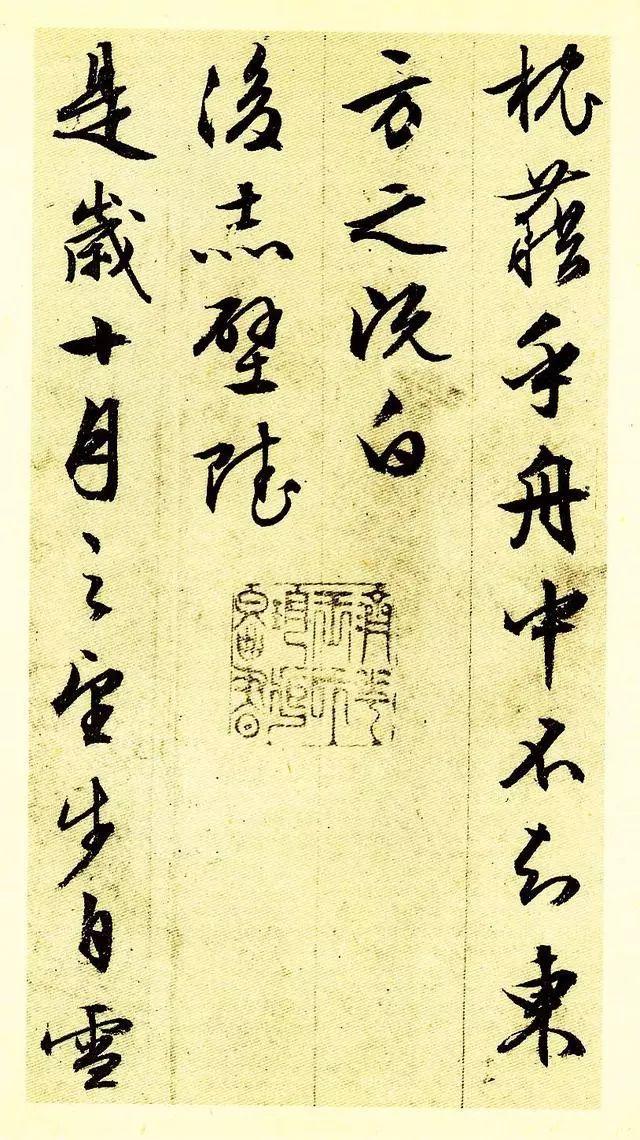 枕藉乎舟中不知東
方之既白
後赤壁賦
是歲十月之望步自雪